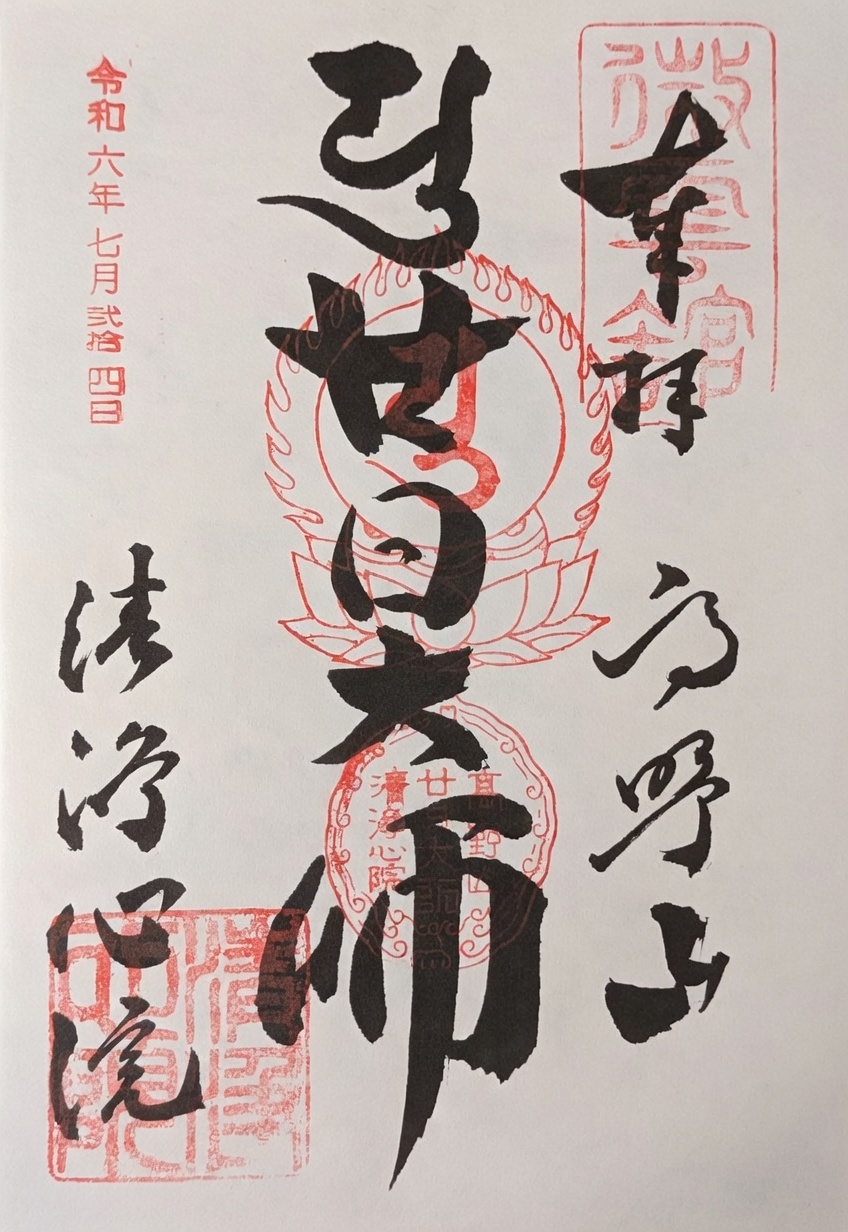 微雲館
奉拝
高野山
廿日大師
高野山
廿日大師
清浄心院
令和六年七月弐拾四日
清浄心院
清浄心院